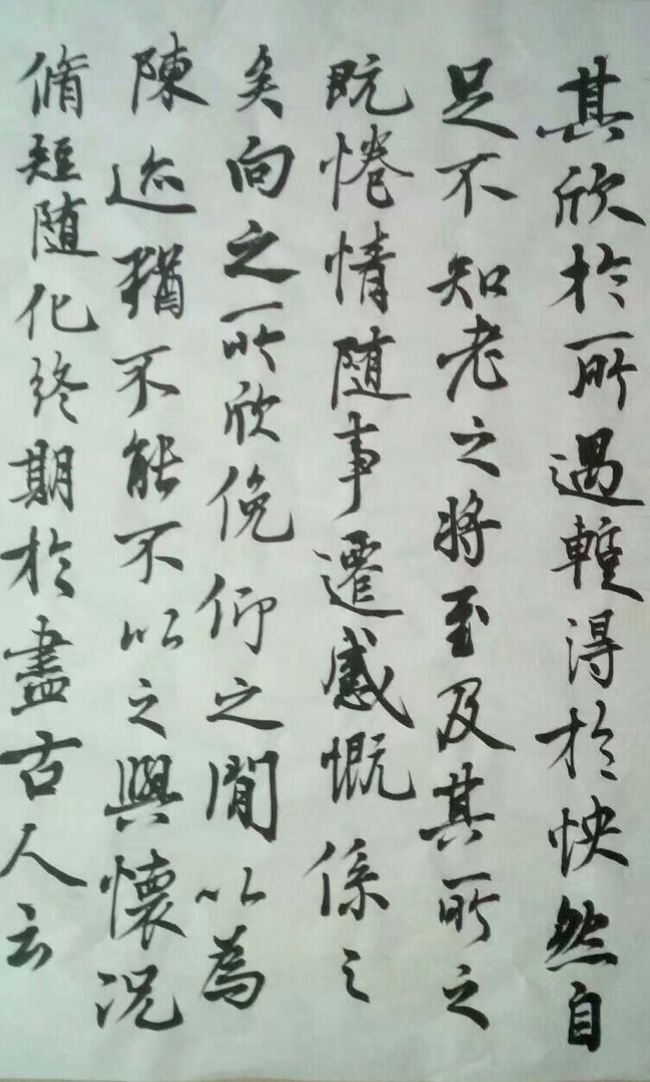 其欣於所遇暫得於怏然自
足不知老之將至及其所之
既惓情隨事遷感慨係之
矣向之所欣俛仰之間以為
陳迹猶不能不以之興懷況
脩短隨化終期於盡古人云